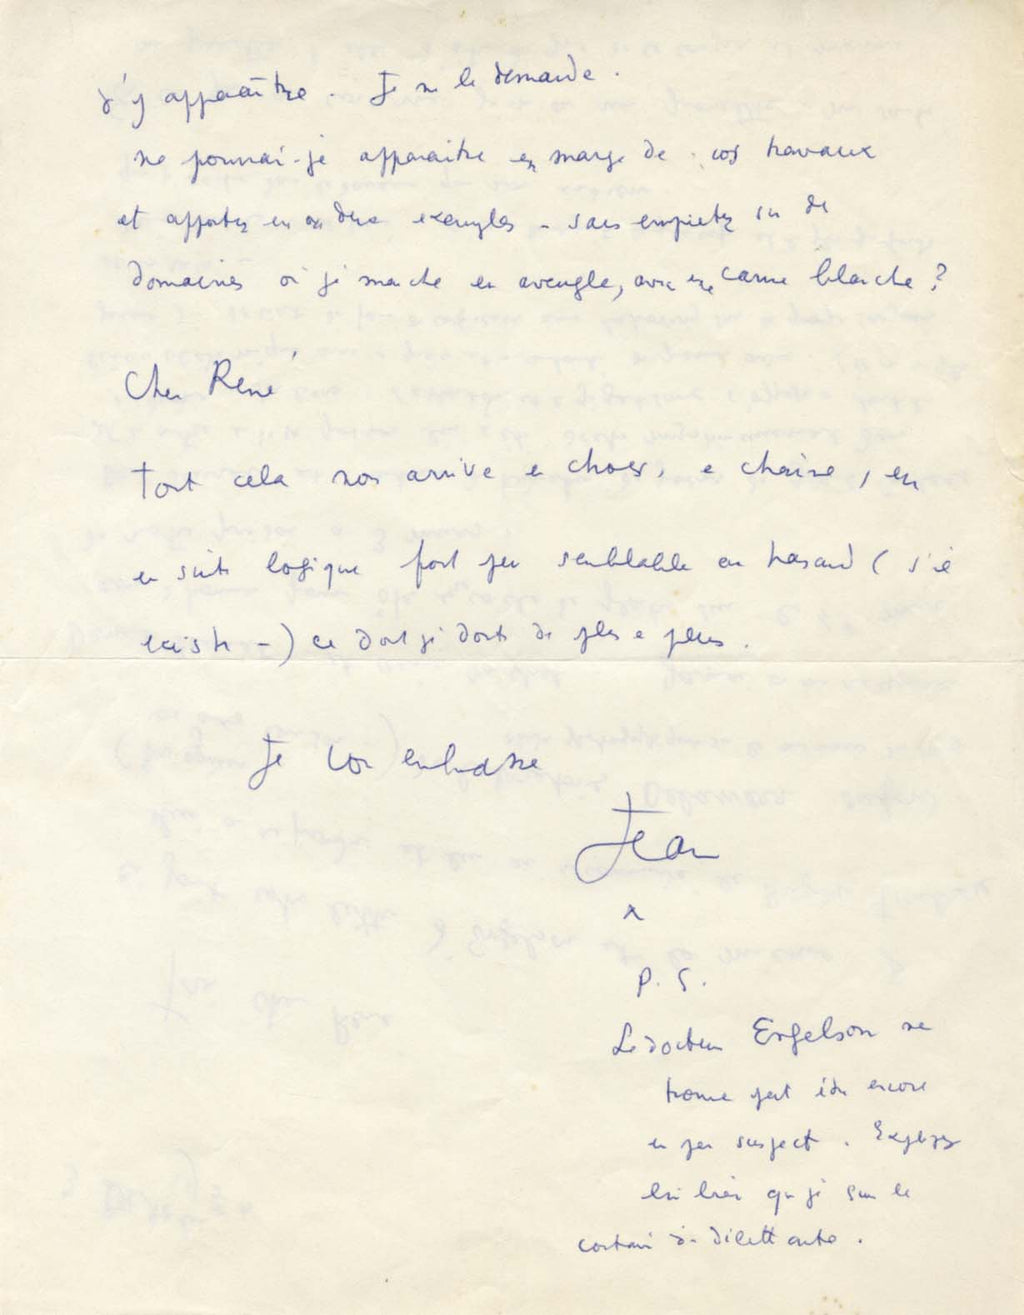 d'y apparaître. Je me le demande.
ne pourrai-je apparaitre en marge de vos travaux
et apporter un ou deux exemples - sans empieter sur des
domaines où je marche en aveugle, avec une canne blanche?
Cher René
tout cela nos arrive en choses, en chaine, en
en suite logique fort peu semblable au hasard (s'il
existe -) ce dont je doute de plus en plus.
Je vous embrasse
Jean
P.S.
Le docteur Enfelson me
trouve peut être encore
un peu suspect. Expliquez
lui bien que je suis le
contraire d'un dilettante.